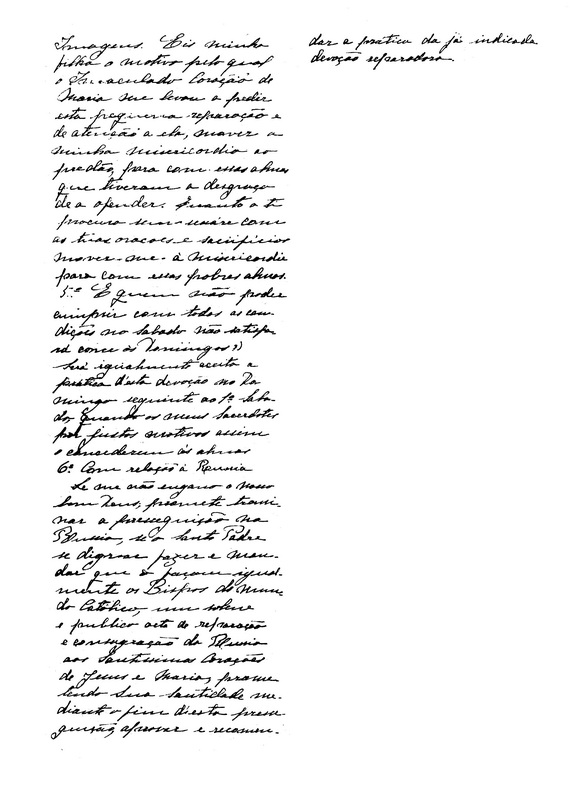 Imagens. Eis minha
filha o motivo pelo qual
o Imaculado Coração de
Maria me levou a pedir
esta pequena reparação e
de atenção a ela, mover a
minha misericordia ao
perdão, para com essas almas
que tiveram a desgraça
de a ofender. Quanto a ti
procura sem-cessar com
as tuas oracoes e sacrificios
mover-me-á misericordia
para com essas pobres almas.
5.º E quem não poder
cumprir com todas as con-
dições no Sabado não satisfa-
rá com os Domingos?)
Será igualmente aceita a
pratica d'esta devoção no Do-
mingo seguinte ao 1º Saba-
do, quando os meus Sacerdotes
por justos motivos assim
o concederem ás almas
6º Com relação á Reussia
Se me não engano o nosso
bom Deus, promete termi-
nar a perseguição na
Russia, se o Santo Padre
se dignar fazer e man-
dar que o façam igual-
mente os Bispos do mun-
do Catolico, um solene
e publico acto de reparação
e consagração da Russia
aos Santissimos Corações
de Jesus e Maria, prome
tendo Sua Santidade me-
diante o fim d'esta perse-
guição, aprovar e recomen-
dar a pratica da já indicada
devoção reparadora.